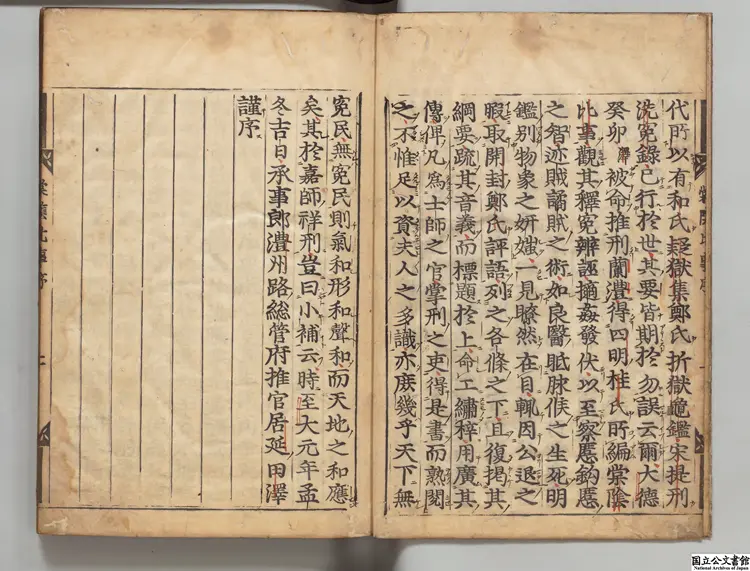 代所以有和氏疑獄集鄭氏折獄龜鑑宋提刑
洗冤錄已行於世其要皆期於勿誤云爾大德
癸卯澤被命推刑蘭澧得四明桂氏所編棠陰
比事觀其釋冤辨誣擿姦發伏以至察慝鈎慝
之智迹賊譎賊之術如良醫胝脉候之生死明
鑑別物象之妍媸一見瞭然在目輒因公退之
暇取開封鄭氏評語列之各條之下且復揭其
綱要疏其音義而標題於上命工繡梓用廣其
傳俾凡爲士師之官掌刑之吏得是書而熟閱
之不惟足以資夫人之多識亦庶幾乎天下無
冤民無冤民則氣和形和聲和而天地之和應
矣其於嘉師祥刑豈曰小補云時至大元年孟
冬吉日承事郎澧州路総管府推官居延田澤
謹序
棠陰比事序
国立公文書館
National Archives of Japan